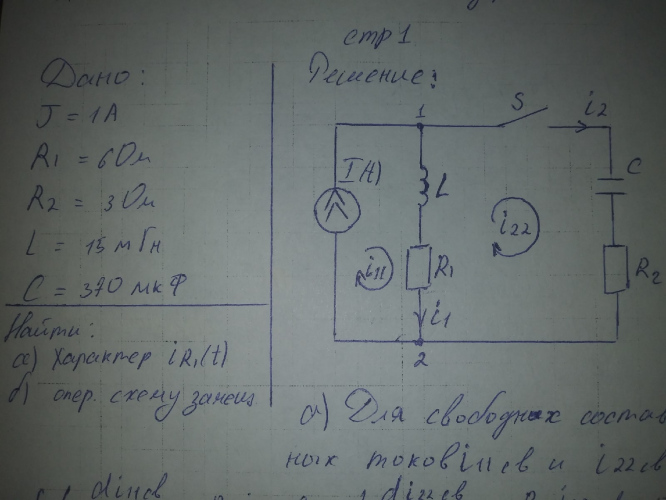 стр 1
Дано:
J = 1 А
R1 = 6 Ом
R2 = 3 Ом
L = 15 мГн
C = 370 мкФ
Найти:
а) Характер iR1(t)
б) опер. схему замещ
Решение:
1
S
i2
I(t)
L
C
i22
i11
R1
R2
i1
2
а) Для свободных состав
ных токов i11св и i22св
di11св
di22св